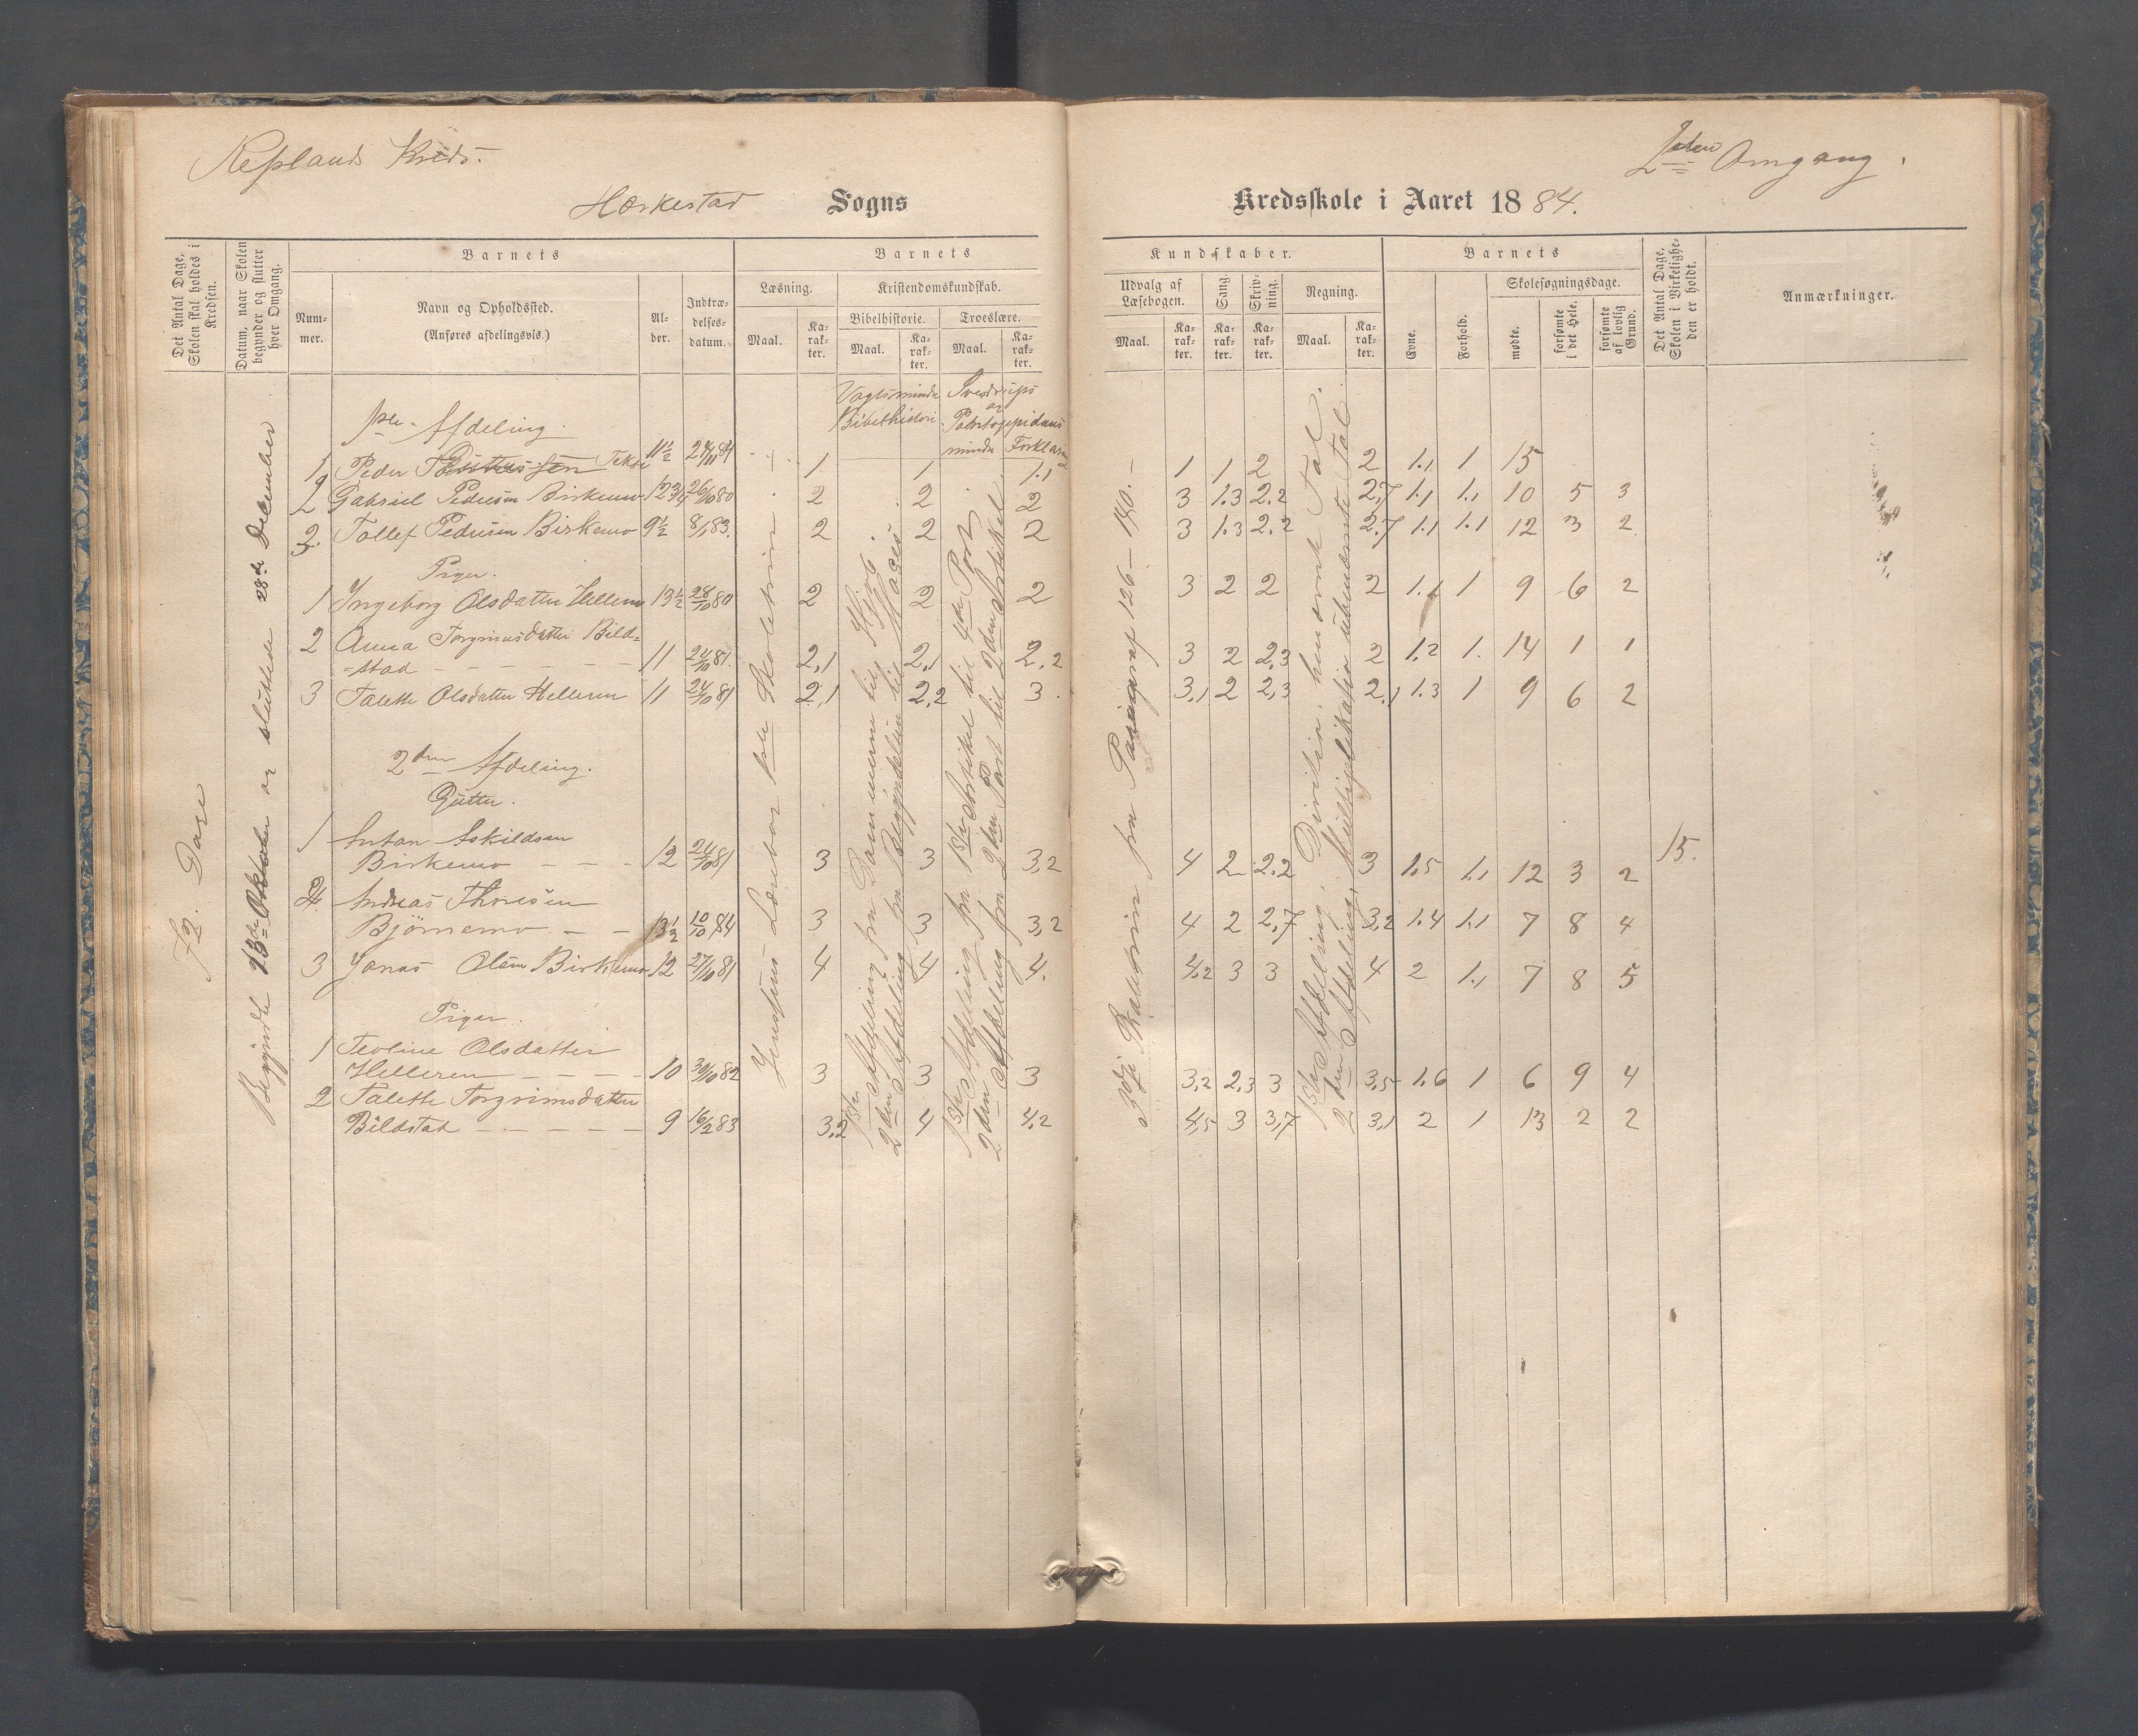 Kreds.
2den Omgang.
Sogns Kredsskole i Aaret 1884.
Det Antal Dage, Skolen skal holdes i Kredsen.
Datum, naar Skolen begynder og slutter hver Omgang.
Barnets
Nummer.
Navn og Opholdssted.
(Anføres afdelingsvis.)
Alder.
Indtrædelsesdatum.
Barnets Kundskaber.
Læsning.
Maal. Karakter.
Kristendomskundskab.
Bibelhistorie. Troeslære.
Maal. Karakter. Maal. Karakter.
Udvalg af Læsebogen.
Maal. Karakter.
Sang Karakter.
Skrivning. Karakter.
Regning.
Maal. Karakter.
Barnets
Evne. Forhold.
Skolesøgningsdage.
mødte. forsømte i det Hele. forsømte af lovlig Grund.
Det Antal Dage, Skolen i Virkeligheden er holdt.
Anmærkninger.
72. Dage
Begyndte Oktober og sluttede 28de December
Vogtsmindre Bibelhistori
Sverdrups og Pontoppidans mindre Forklaring
1ste Afdeling.
1 Peder 11½ 24/11 84 1 1 1.1 1 1 2 2 1.1 1 15
2 Gabriel Pedersen Birkemo 12 3/4 26/10 80 2 2 2 3 1.3 2.2 2,7 1.1 1.1 10 5 3
3. Tollef Pedersen Birkemo 9½ 8/1 83. 2 2 2 3 1.3 2.2 2.7 1.1 1.1 12 3 2
Piger.
1 Ingeborg Olsdatter Helleren 13½ 28/10 80 2 2 2 3 2 2 2 1.1 1 9 6 2
2 Anna Torgrimsdatter Bild=
=stad 11 24/10 81. 2,1 2,1 2,2 3 2 2,3 2 1.2 1. 14 1 1
3 Talette Olsdatter Helleren 11 24/10 81 2,1 2,2 3. 3,1 2 2,3 2,1 1.3 1 9 6 2
2den Afdeling.
Gutter.
1 Anton Askildsen
Birkemo 12 24/10 81 3 3 3,2 4 2 2.2 3 1.5 1.1 12 3 2 15.
2 Andreas Thoresen
Bjørnemo 13½ 10/10 84 3 3 3,2 4 2 2,7 3,2 1.4 1.1 7 8 4
3 Jonas Olsen Birkemo 12 27/10 81 4 4 4. 4,2 3 3 4 2 1.1 7 8 5
Piger.
1 Teoline Olsdatter
Helleren 10 30/10 82 3 3 3 3,2 2,3 3 3,5 1.6 1 6 9 4
2 Talette Torgrimsdatter
Bildstad 9 16/2 83 3,2 4 4,2 4,5 3 3,7 3,1 2 1 13 2 2
Jensens Læsebog 1ste Skoletrin.
1ste Afdeling fra Dommerne til
2den Afdeling fra Begyndelsen til Moses.
1ste Afdeling fra 1ste Artikel til 4de Part
2den Afdeling fra 2den Part til 2den Artikel
3die fra Paragraf 126-140.
1ste Afdeling, Division, benævnte Tal.
2den Afdeling, Multiplikation ubenævnte Tal